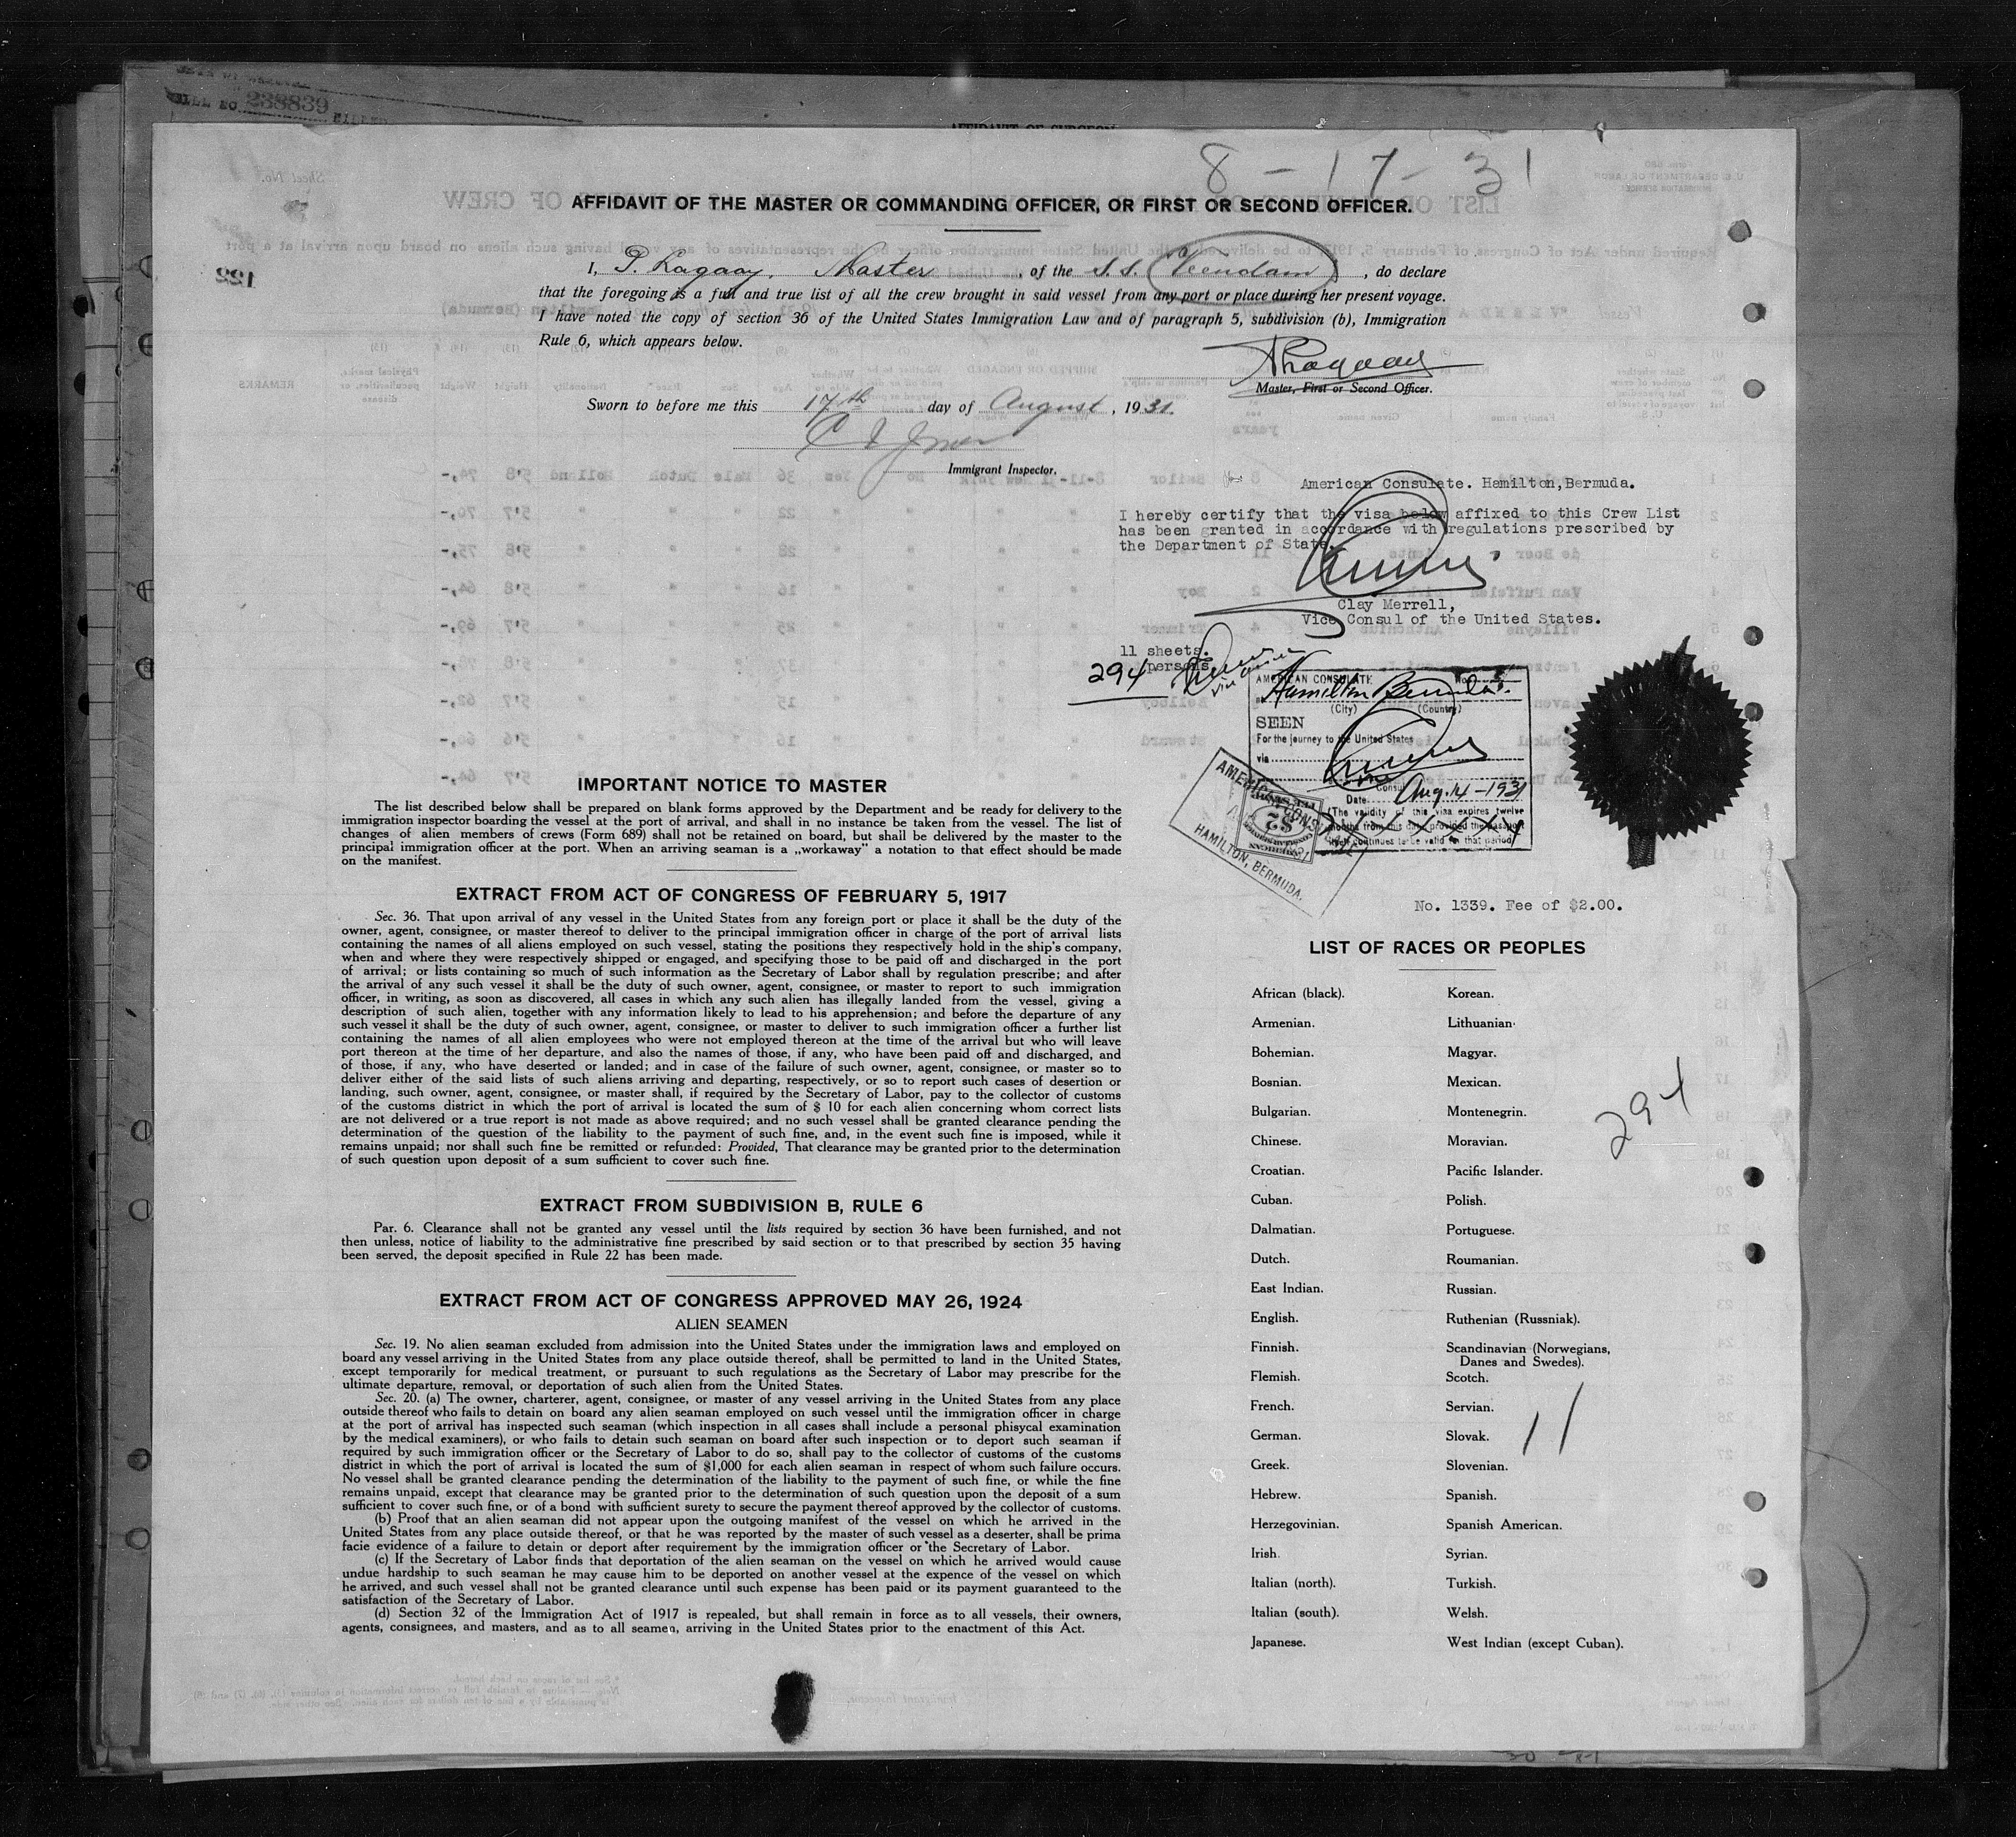 BILL NO 238839
AFFIDAVIT OF SURGEON
8-17-31
AFFIDAVIT OF THE MASTER OR COMMANDING OFFICER, OR FIRST OR SECOND OFFICER.
I, P. Lagaay, Master, of the S.S. Veendam, do declare
that the foregoing is a full and true list of all the crew brought in said vessel from any port or place during her present voyage.
I have noted the copy of section 36 of the United States Immigration Law and of paragraph 5, subdivision (b), Immigration
Rule 6, which appears below.
Master, First or Second Officer.
Sworn to before me this 17th day of August, 1931.
Immigrant Inspector.
American Consulate. Hamilton,Bermuda.
I hereby certify that the visa below affixed to this Crew List
has been granted in accordance with regulations prescribed by
the Department of State.
Clay Merrell,
Vice Consul of the United States.
11 sheets.
294 persons
AMERICAN CONSULATE No.
Hamilton Bermuda.
(City) (Country)
SEEN
For the journey to the United States
via
Consul
Date Aug. 14-1931
(The validity of this visa expires twelve
months from this date provided the passport
itself continues to be valid for that period)
HAMILTON, BERMUDA.
No. 1339. Fee of $2.00.
IMPORTANT NOTICE TO MASTER
The list described below shall be prepared on blank forms approved by the Department and be ready for delivery to the
immigration inspector boarding the vessel at the port of arrival, and shall in no instance be taken from the vessel. The list of
changes of alien members of crews (Form 689) shall not be retained on board, but shall be delivered by the master to the
principal immigration officer at the port. When an arriving seaman is a „workaway” a notation to that effect should be made
on the manifest.
EXTRACT FROM ACT OF CONGRESS OF FEBRUARY 5, 1917
Sec. 36. That upon arrival of any vessel in the United States from any foreign port or place it shall be the duty of the
owner, agent, consignee, or master thereof to deliver to the principal immigration officer in charge of the port of arrival lists
containing the names of all aliens employed on such vessel, stating the positions they respectively hold in the ship's company,
when and where they were respectively shipped or engaged, and specifying those to be paid off and discharged in the port
of arrival; or lists containing so much of such information as the Secretary of Labor shall by regulation prescribe; and after
the arrival of any such vessel it shall be the duty of such owner, agent, consignee, or master to report to such immigration
officer, in writing, as soon as discovered, all cases in which any such alien has illegally landed from the vessel, giving a
description of such alien, together with any information likely to lead to his apprehension; and before the departure of any
such vessel it shall be the duty of such owner, agent, consignee, or master to deliver to such immigration officer a further list
containing the names of all alien employees who were not employed thereon at the time of the arrival but who will leave
port thereon at the time of her departure, and also the names of those, if any, who have been paid off and discharged, and
of those, if any, who have deserted or landed; and in case of the failure of such owner, agent, consignee, or master so to
deliver either of the said lists of such aliens arriving and departing, respectively, or so to report such cases of desertion or
landing, such owner, agent, consignee, or master shall, if required by the Secretary of Labor, pay to the collector of customs
of the customs district in which the port of arrival is located the sum of $ 10 for each alien concerning whom correct lists
are not delivered or a true report is not made as above required; and no such vessel shall be granted clearance pending the
determination of the question of the liability to the payment of such fine, and, in the event such fine is imposed, while it
remains unpaid; nor shall such fine be remitted or refunded: Provided, That clearance may be granted prior to the determination
of such question upon deposit of a sum sufficient to cover such fine.
EXTRACT FROM SUBDIVISION B, RULE 6
Par. 6. Clearance shall not be granted any vessel until the lists required by section 36 have been furnished, and not
then unless, notice of liability to the administrative fine prescribed by said section or to that prescribed by section 35 having
been served, the deposit specified in Rule 22 has been made.
EXTRACT FROM ACT OF CONGRESS APPROVED MAY 26, 1924
ALIEN SEAMEN
Sec. 19. No alien seaman excluded from admission into the United States under the immigration laws and employed on
board any vessel arriving in the United States from any place outside thereof, shall be permitted to land in the United States,
except temporarily for medical treatment, or pursuant to such regulations as the Secretary of Labor may prescribe for the
ultimate departure, removal, or deportation of such alien from the United States.
Sec. 20. (a) The owner, charterer, agent, consignee, or master of any vessel arriving in the United States from any place
outside thereof who fails to detain on board any alien seaman employed on such vessel until the immigration officer in charge
at the port of arrival has inspected such seaman (which inspection in all cases shall include a personal phisycal examination
by the medical examiners), or who fails to detain such seaman on board after such inspection or to deport such seaman if
required by such immigration officer or the Secretary of Labor to do so, shall pay to the collector of customs of the customs
district in which the port of arrival is located the sum of $1,000 for each alien seaman in respect of whom such failure occurs.
No vessel shall be granted clearance pending the determination of the liability to the payment of such fine, or while the fine
remains unpaid, except that clearance may be granted prior to the determination of such question upon the deposit of a sum
sufficient to cover such fine, or of a bond with sufficient surety to secure the payment thereof approved by the collector of customs.
(b) Proof that an alien seaman did not appear upon the outgoing manifest of the vessel on which he arrived in the
United States from any place outside thereof, or that he was reported by the master of such vessel as a deserter, shall be prima
facie evidence of a failure to detain or deport after requirement by the immigration officer or the Secretary of Labor.
(c) If the Secretary of Labor finds that deportation of the alien seaman on the vessel on which he arrived would cause
undue hardship to such seaman he may cause him to be deported on another vessel at the expence of the vessel on which
he arrived, and such vessel shall not be granted clearance until such expense has been paid or its payment guaranteed to the
satisfaction of the Secretary of Labor.
(d) Section 32 of the Immigration Act of 1917 is repealed, but shall remain in force as to all vessels, their owners,
agents, consignees, and masters, and as to all seamen, arriving in the United States prior to the enactment of this Act.
LIST OF RACES OR PEOPLES
African (black). Korean.
Armenian. Lithuanian.
Bohemian. Magyar.
Bosnian. Mexican.
Bulgarian. Montenegrin.
Chinese. Moravian.
Croatian. Pacific Islander.
Cuban. Polish.
Dalmatian. Portuguese.
Dutch. Roumanian.
East Indian. Russian.
English. Ruthenian (Russniak).
Finnish. Scandinavian (Norwegians,
Danes and Swedes).
Flemish. Scotch.
French. Servian.
German. Slovak.
Greek. Slovenian.
Hebrew. Spanish.
Herzegovinian. Spanish American.
Irish. Syrian.
Italian (north). Turkish.
Italian (south). Welsh.
Japanese. West Indian (except Cuban).
294
11